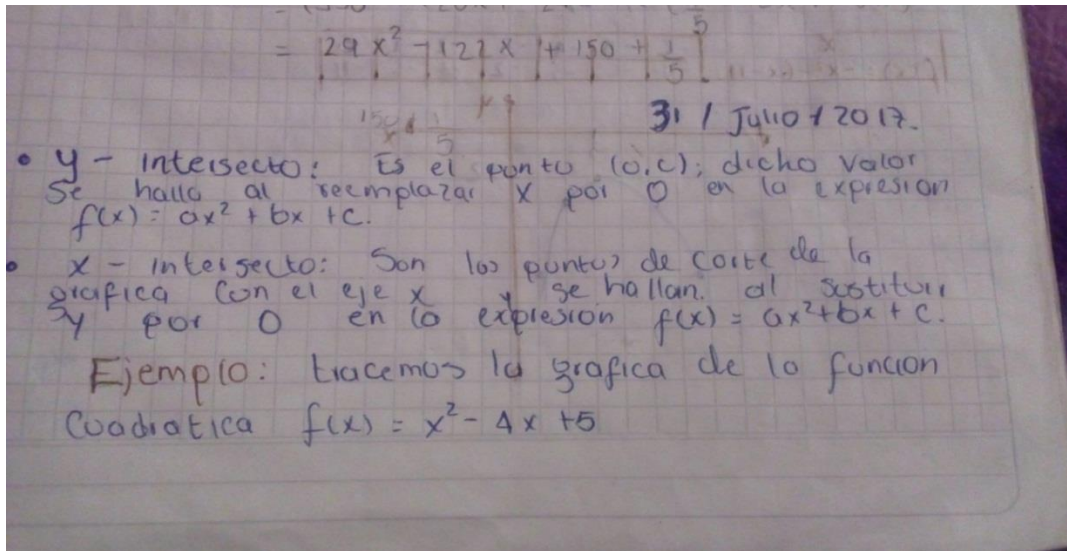 = |29x² - 127x + 150 + 1/5|
31 / Julio / 2017.
• y - intersecto: Es el punto (0,c); dicho valor
se halla al reemplazar x por 0 en la expresion
f(x) = ax² + bx + c.
• x - intersecto: Son los puntos de corte de la
grafica con el eje x y se hallan. al sustituir
y por 0 en la expresion f(x) = ax² + bx + c.
Ejemplo: tracemos la grafica de la funcion
cuadratica f(x) = x² - 4x + 5